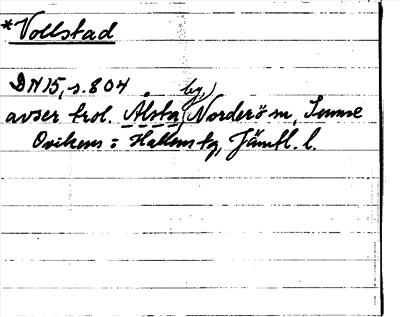 *Vollstad
DN 15, s. 804.
avser trol. Alsta, by, Norderö sn, Sunne
Ovikens o Hallens tg, Jämtl. l.